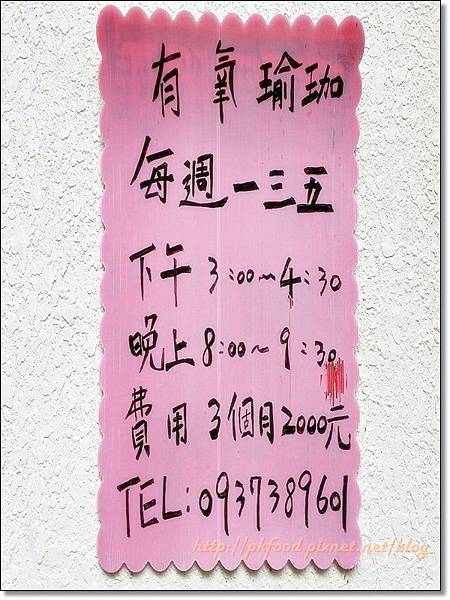 有氧瑜珈
每週一三五
下午 3:00~4:30
晚上 8:00~9:30
費用 3個月2000元
TEL:0937389601
http://pkfood.pixnet.net/blog